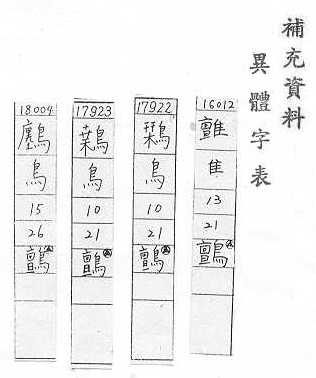 補充資料
異體字表
16012
隹
13
21
鸇
17922
鳥
10
21
鸇
17923
鳥
10
21
鸇
18004
鳥
15
26
鸇